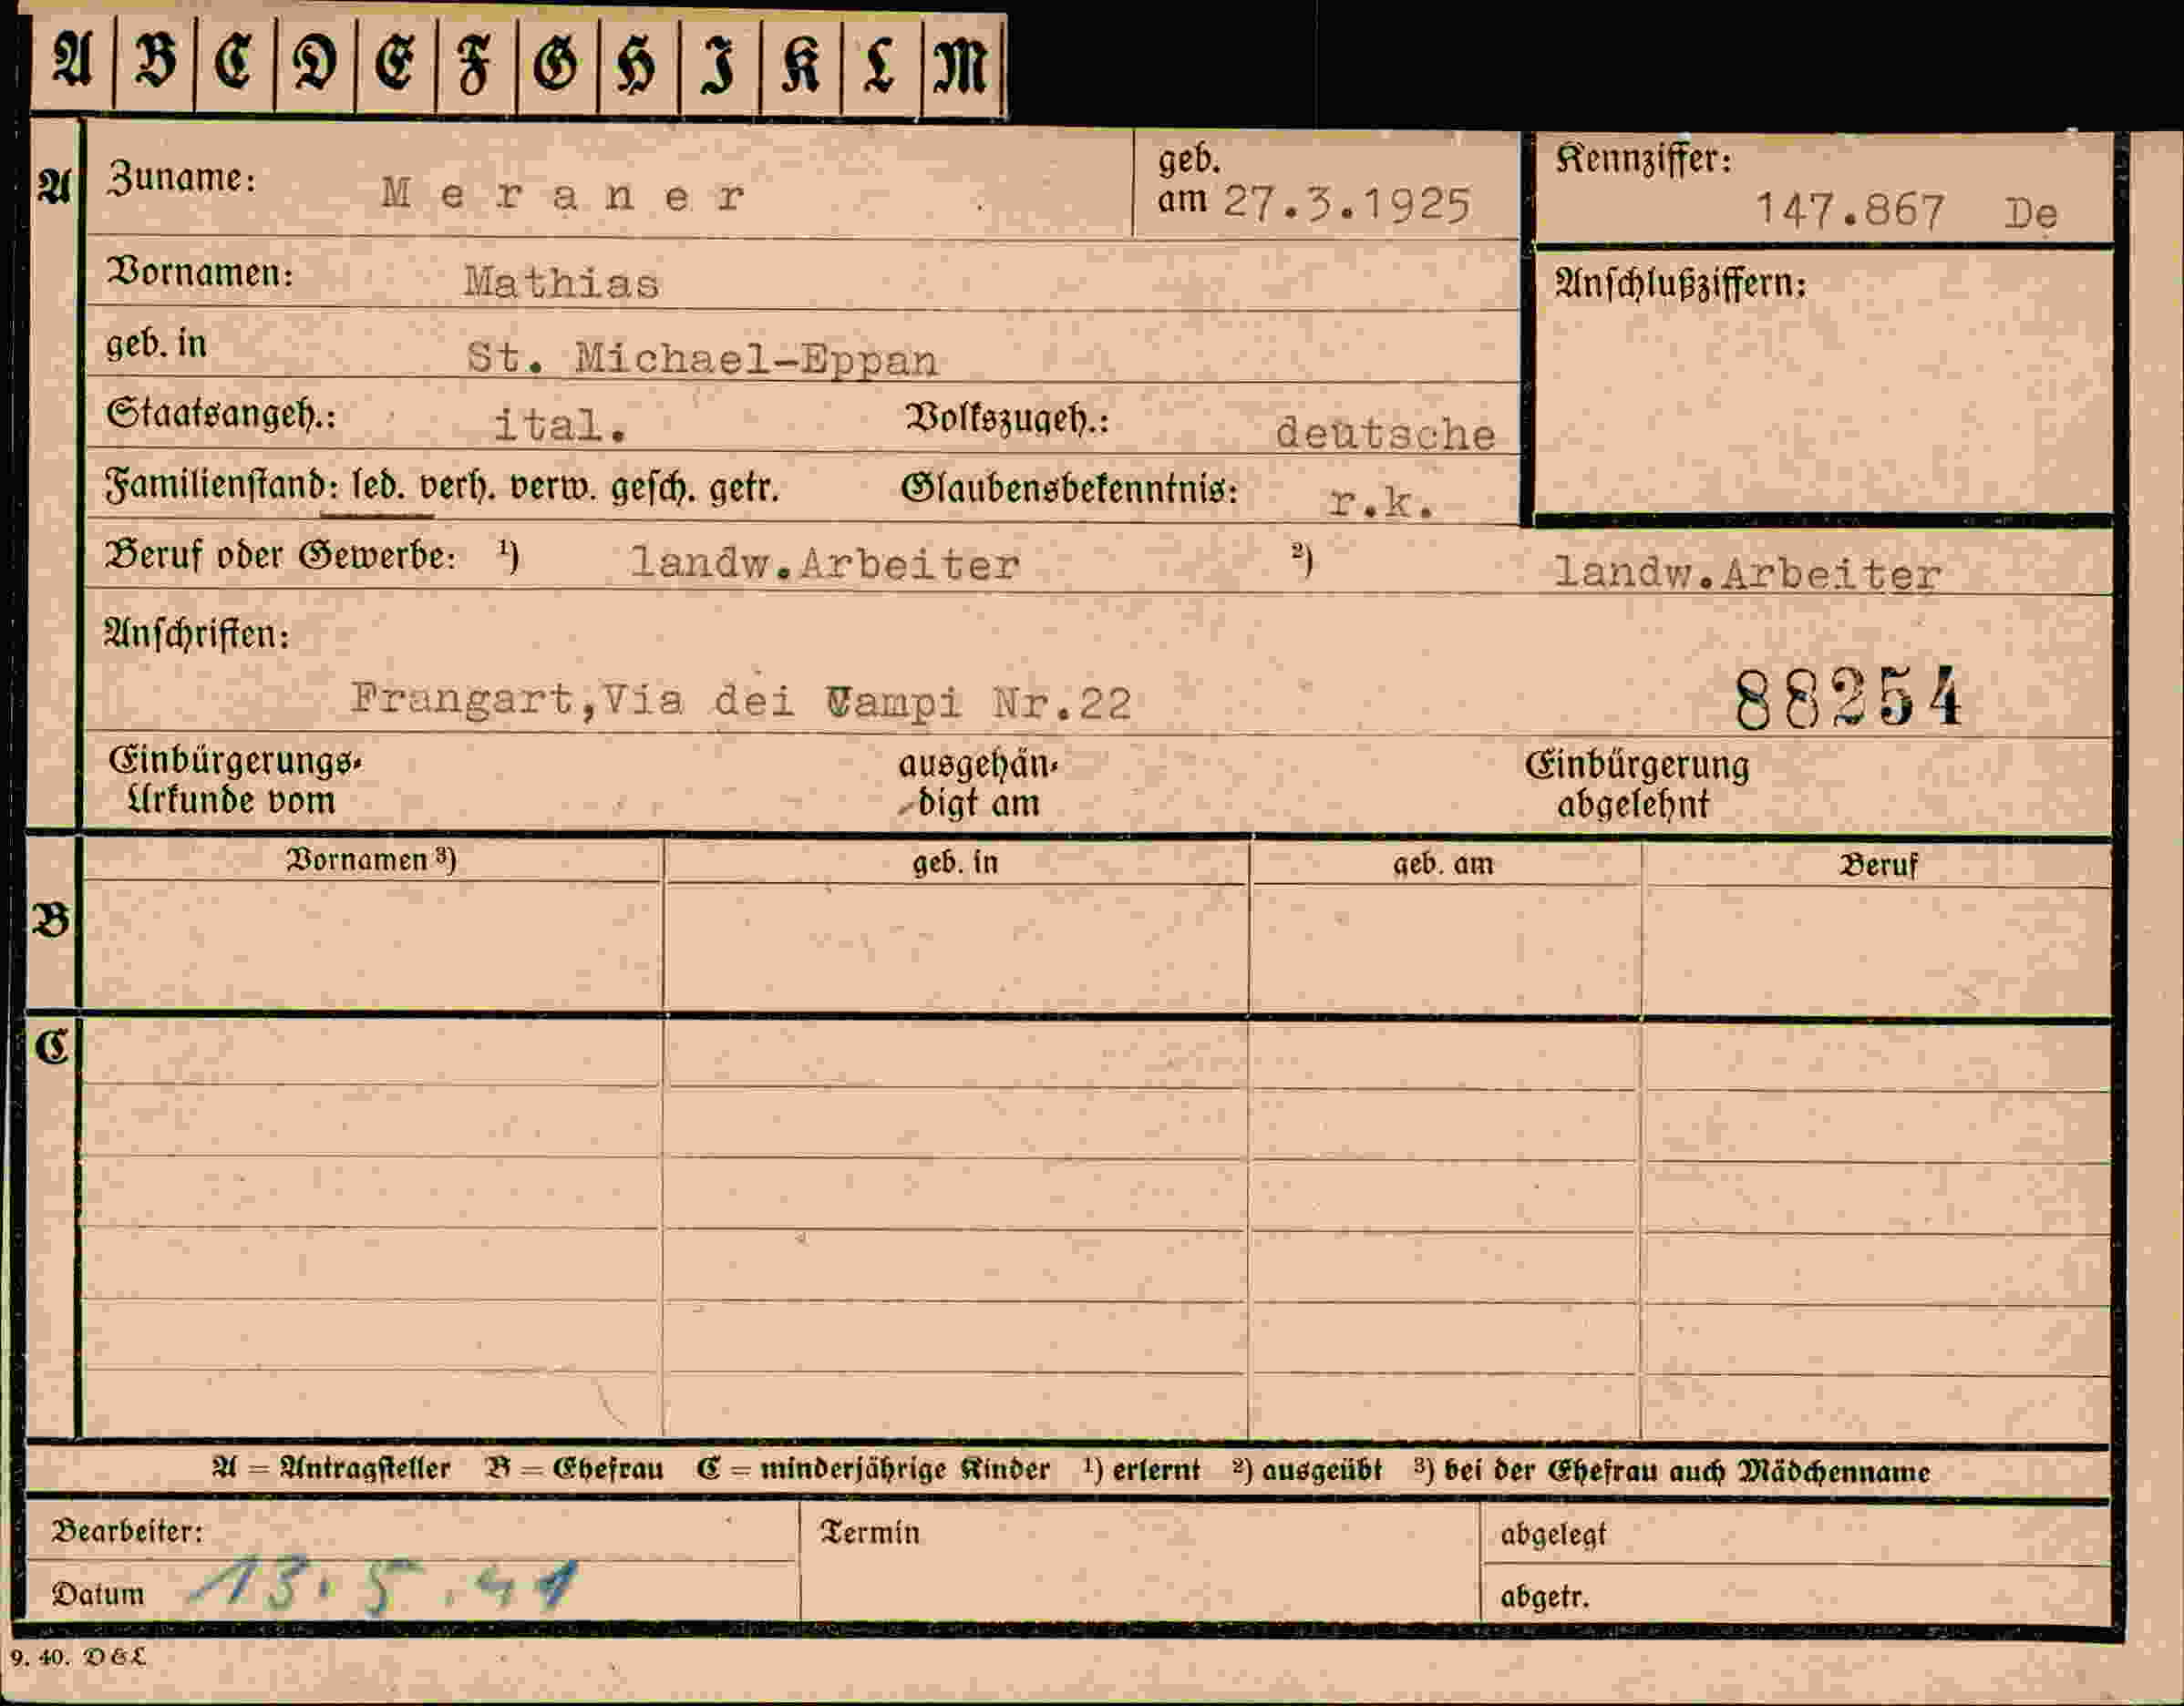 A B C D E F G H I K L M
A Zuname: Meraner geb. am 27.3.1925 Kennziffer: 147.867 De
Vornamen: Mathias Anschlußziffern:
geb. in St. Michael-Eppan
Staatsangeh.: ital. Volkszugeh.: deutsche
Familienstand: led. verh. verw. gesch. getr. Glaubensbekenntnis: r.k.
Beruf oder Gewerbe: ¹) landw.Arbeiter ²) landw.Arbeiter
Anschriften:
Frangart,Via dei Campi Nr.22 88254
Einbürgerungs- ausgehän- Einbürgerung
Urkunde vom digt am abgelehnt
Vornamen ³) geb. in geb. am Beruf
B
C
A = Antragsteller B = Ehefrau C = minderjährige Kinder ¹) erlernt ²) ausgeübt ³) bei der Ehefrau auch Mädchenname
Bearbeiter: Termin abgelegt
Datum 13.5.41 abgetr.
9. 40. D & L